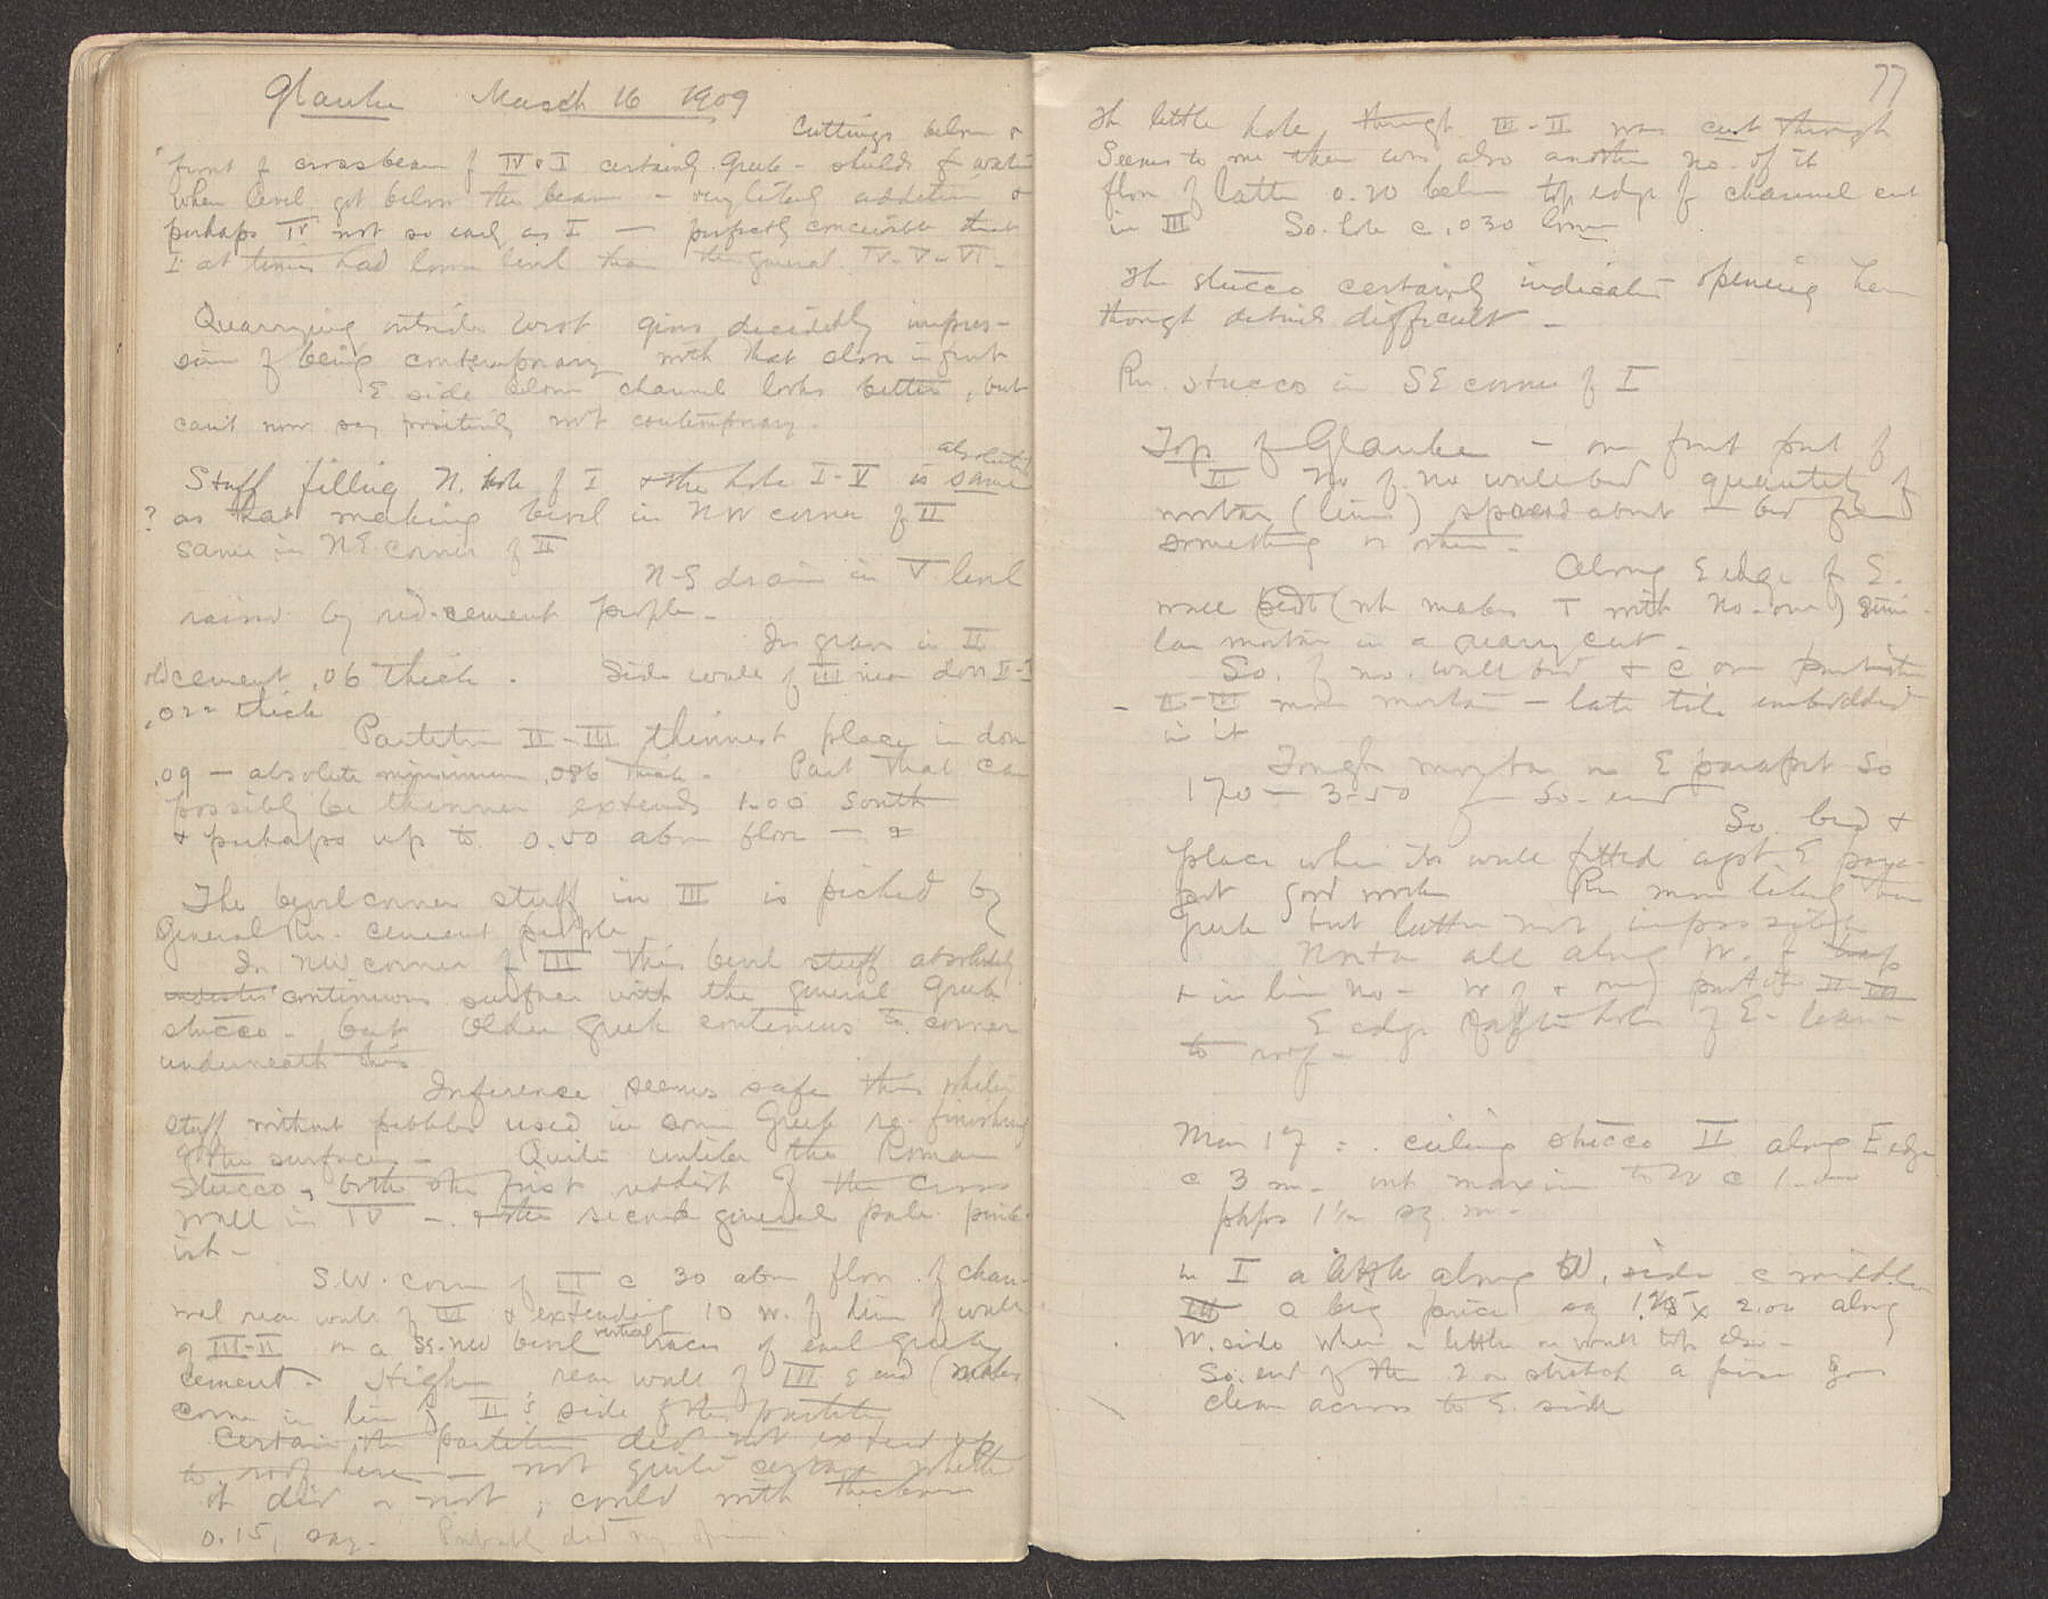 Glauke March 16 1909
Cuttings below &
front of crossbeam of IV & I certainly Greek - shields of water
when level got below the beam - very likely addition &
perhaps IV not so early as I — perfectly conceivable that
I at times had lower level than the general IV-V-VI-
Quarrying outside West gives decidedly impres-
sion of being contemporary with that alone in front
E side alone channel looks better, but
can't now say positively not contemporary.
absolutely
Stuff filling N. hole of I & the hole I-V is same
? as that making bevel in NW corner of II
same in NE corner of II
N-S drain in V level
raised by red-cement people -
In graves in II
old cement .06 thick. Side wall of III near door II-I
.022 thick
Partition II-III thinnest place in door
.09 — absolute minimum .086 thick. Part that can
possibly be thinner extends 1.00 south
& perhaps up to 0.50 above floor —
The bevel corner stuff in III is picked by
General Rn. cement people
In NW corner of III this bevel stuff absolutely
continuous surface with the general Greek
stucco - but older Greek continues to corner
underneath this
Inference seems safe this white
stuff without pebbles used in some Greek re-finishing
of the surfaces - Quite unlike the Roman
stucco, both the first reddish of the cross
wall in IV - & the second general pale pink-
ish -
S.W. corner of III c 30 above floor of chan-
nel rear wall of III & extending 10 W. of line of wall
of III-II on a SE-NW bevel vertical traces of early Greek
cement - Higher rear wall of III E end (makes
corner in line of II's side of the partition
Certain the partition did not extend up
to roof here — not quite certain whether
it did or not, could with thickness
0.15, say - Probably did my opinion.
77
The little hole through III-II was cut through
Seems to me there was also another no. of it
floor of latter 0.20 below top edge of channel cut
in III So. hole c .030 lower
The stucco certainly indicates opening here
though details difficult -
Rn. stucco in SE corner of I
Top of Glauke - on front part of
II No of no wall bed quantity of
mortar (lime) spread about - bed for
something or other -
Along E edge of E.
wall bed (wh makes T with no-one) simi-
lar mortar in a quarry cut -
So. of no. wall bed & c over partition
- II-III more mortar - late tile embedded
in it
Tough mortar on E parapet So
170 — 3.50 from So-end
So. bed &
place where its wall fitted agst. E para-
pet good work Rn more likely than
Greek but latter not impossible
Mortar all along W. of
& in line No - W of & over partition II-III
E edge holes of E. lean-
to roof -
Mar 17 : . ceiling stucco II along E edge
c 3 m - out maximum to W c 1.00
phps 1½ sq. m -
In I a little along W. side c middle
III a big piece sq 1.25 x 2.00 along
W. side where a little on wall top also -
So. end of the 2 m stretch a piece goes
clear across to E. side